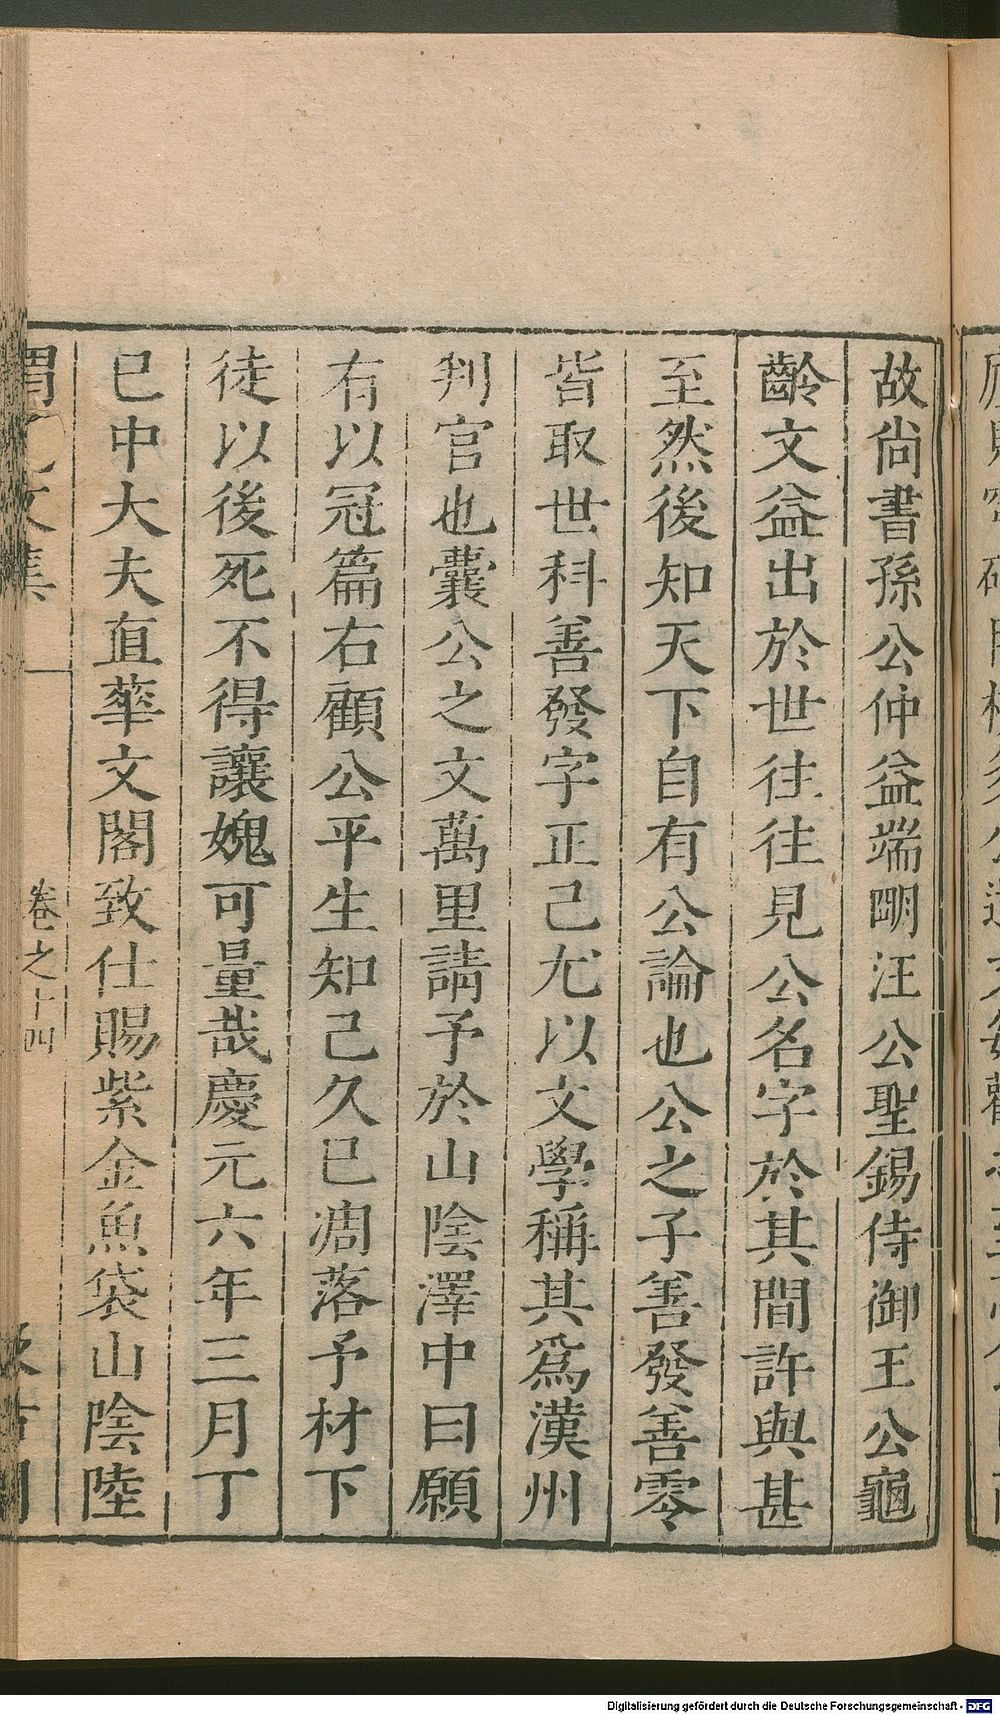 故尚書孫公仲益端明汪公聖錫侍御王公龜
齡文益出於世往往見公名字於其間許與甚
至然後知天下自有公論也公之子善發善零
皆取世科善發字正己尤以文學稱其爲漢州
判官也囊公之文萬里請予於山陰澤中曰願
有以冠篇右顧公平生知己久已凋落予材下
徒以後死不得讓媿可量哉慶元六年三月丁
巳中大夫直華文閣致仕賜紫金魚袋山陰陸
文集
卷之十四
Digitalisierung gefördert durch die Deutsche Forschungsgemeinschaft - DFG